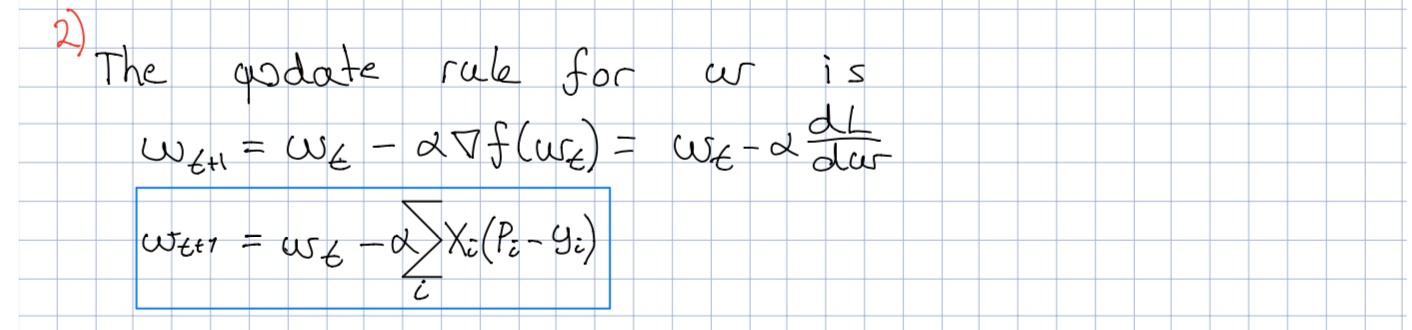 2)
The update rule for w is
w_{t+1} = w_t - α∇f(w_t) = w_t - α dL/dw
w_{t+1} = w_t - α∑_i X_i(P_i - y_i)